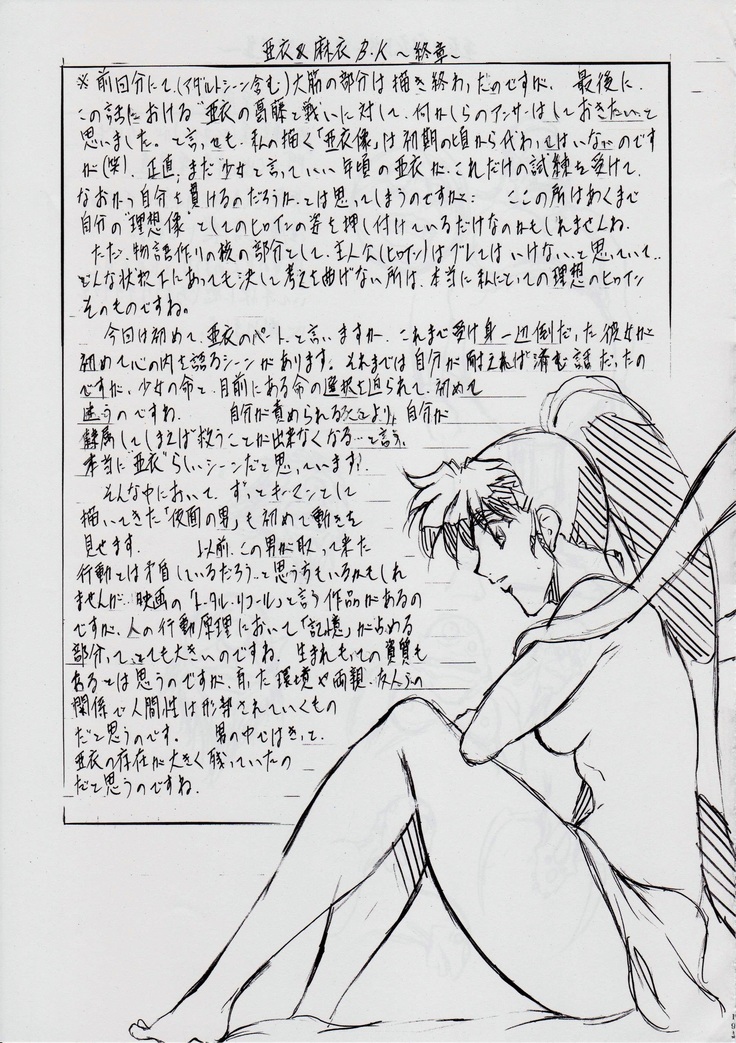 亜衣&麻衣 B.K ～終章～
※前回分にて、(アダルトシーン含む)大筋の部分は描き終わったのですが、最後に、
この話における"亜衣の葛藤と戦い"に対して、何かしらのアンサーはしておきたい、と
思いました。と言っても、私の描く「亜衣像」は初期の頃から代わってはいないのです
が(笑)、正直、まだ少女と言っていい年頃の亜衣が、これだけの試練を受けて、
なおかつ自分を貫けるのだろうか、とは思ってしまうのですが… ここの所はあくまで
自分の"理想像"としてのヒロインの姿を押し付けているだけなのかもしれませんね。
ただ、物語作りの核の部分として、主人公(ヒロイン)はブレてはいけない、と思っていて…
どんな状況下にあっても決して考えを曲げない所は、本当に私にとっての理想のヒロイン
そのものですね。
今回は初めて、亜衣のペートと言いますか、これまで受け身一辺倒だった彼女が
初めて心の内を語るシーンがあります。それまでは自分が耐えれば済む話だったの
ですが、少女の命と、目前にある命の選択を迫られて、初めて
迷うのですね。 自分が責められることより、自分が
隷属してしまえば救うことが出来なくなる…と言う、
本当に"亜衣"らしいシーンだと思っています!
そんな中において、ずっとキーマンとして
描いてきた「仮面の男」も初めて動きを
見せます。 以前、この男が取って来た
行動とは矛盾しているだろう…と思う方もいるかもしれ
ませんが…映画の「トータル・リコール」と言う作品があるの
ですが、人の行動原理において「記憶」が占める
部分って、とても大きいのですね。生まれもっての資質も
あるとは思うのですが、育った環境や両親、友人との
関係で人間性は形成されていくもの
だと思うのです。 男の中ではきっと、
亜衣の存在が大きく残っていたの
だと思うのですね。